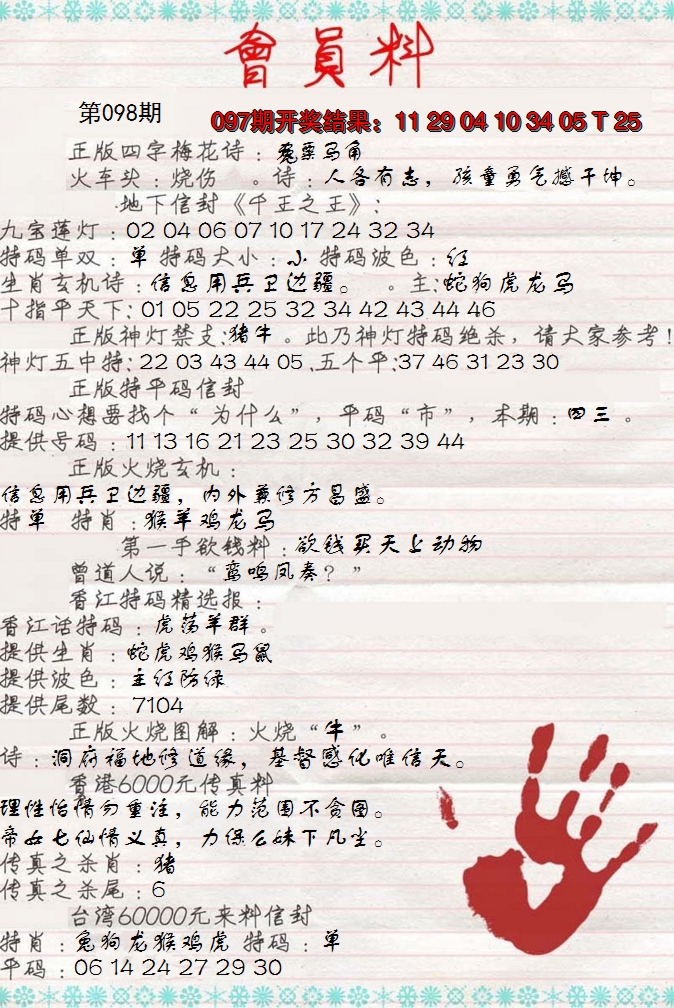 會員料
第098期
097期开奖结果：11 29 04 10 34 05 T 25
正版四字梅花诗：兔粟马角
火车头：烧伤 。诗：人各有志，孩童勇气撼干坤。
地下信封《千王之王》：
九宝莲灯：02 04 06 07 10 17 24 32 34
特码单双：单 特码大小：小 特码波色：红
生肖玄机诗：信息用兵卫边疆。 。主:蛇狗虎龙马
十指平天下: 01 05 22 25 32 34 42 43 44 46
正版神灯禁支:猪牛 。此乃神灯特码绝杀，请大家参考!
神灯五中特: 22 03 43 44 05 .五个平:37 46 31 23 30
正版特平码信封
特码心想要找个“为什么”，平码“市”，本期：四三 。
提供号码：11 13 16 21 23 25 30 32 39 44
正版火烧玄机：
信息用兵卫边疆，内外兼修方昌盛。
特单 特肖：猴羊鸡龙马
第一手欲钱料：欲钱买天上动物
曾道人说：“鸾鸣凤奏？”
香江特码精选报：
香江话特码：虎荡羊群。
提供生肖：蛇虎鸡猴马鼠
提供波色：主红防绿
提供尾数： 7104
正版火烧图解：火烧“牛”。
诗：洞府福地修道缘，基督感化唯信天。
香港6000元传真料
理性怡情勿重注，能力范围不贪图。
帝女七仙情义真，力保么妹下凡尘。
传真之杀肖：猪
传真之杀尾：6
台湾60000元来料信封
特肖：兔狗龙猴鸡虎 特码：单
平码：06 14 24 27 29 30